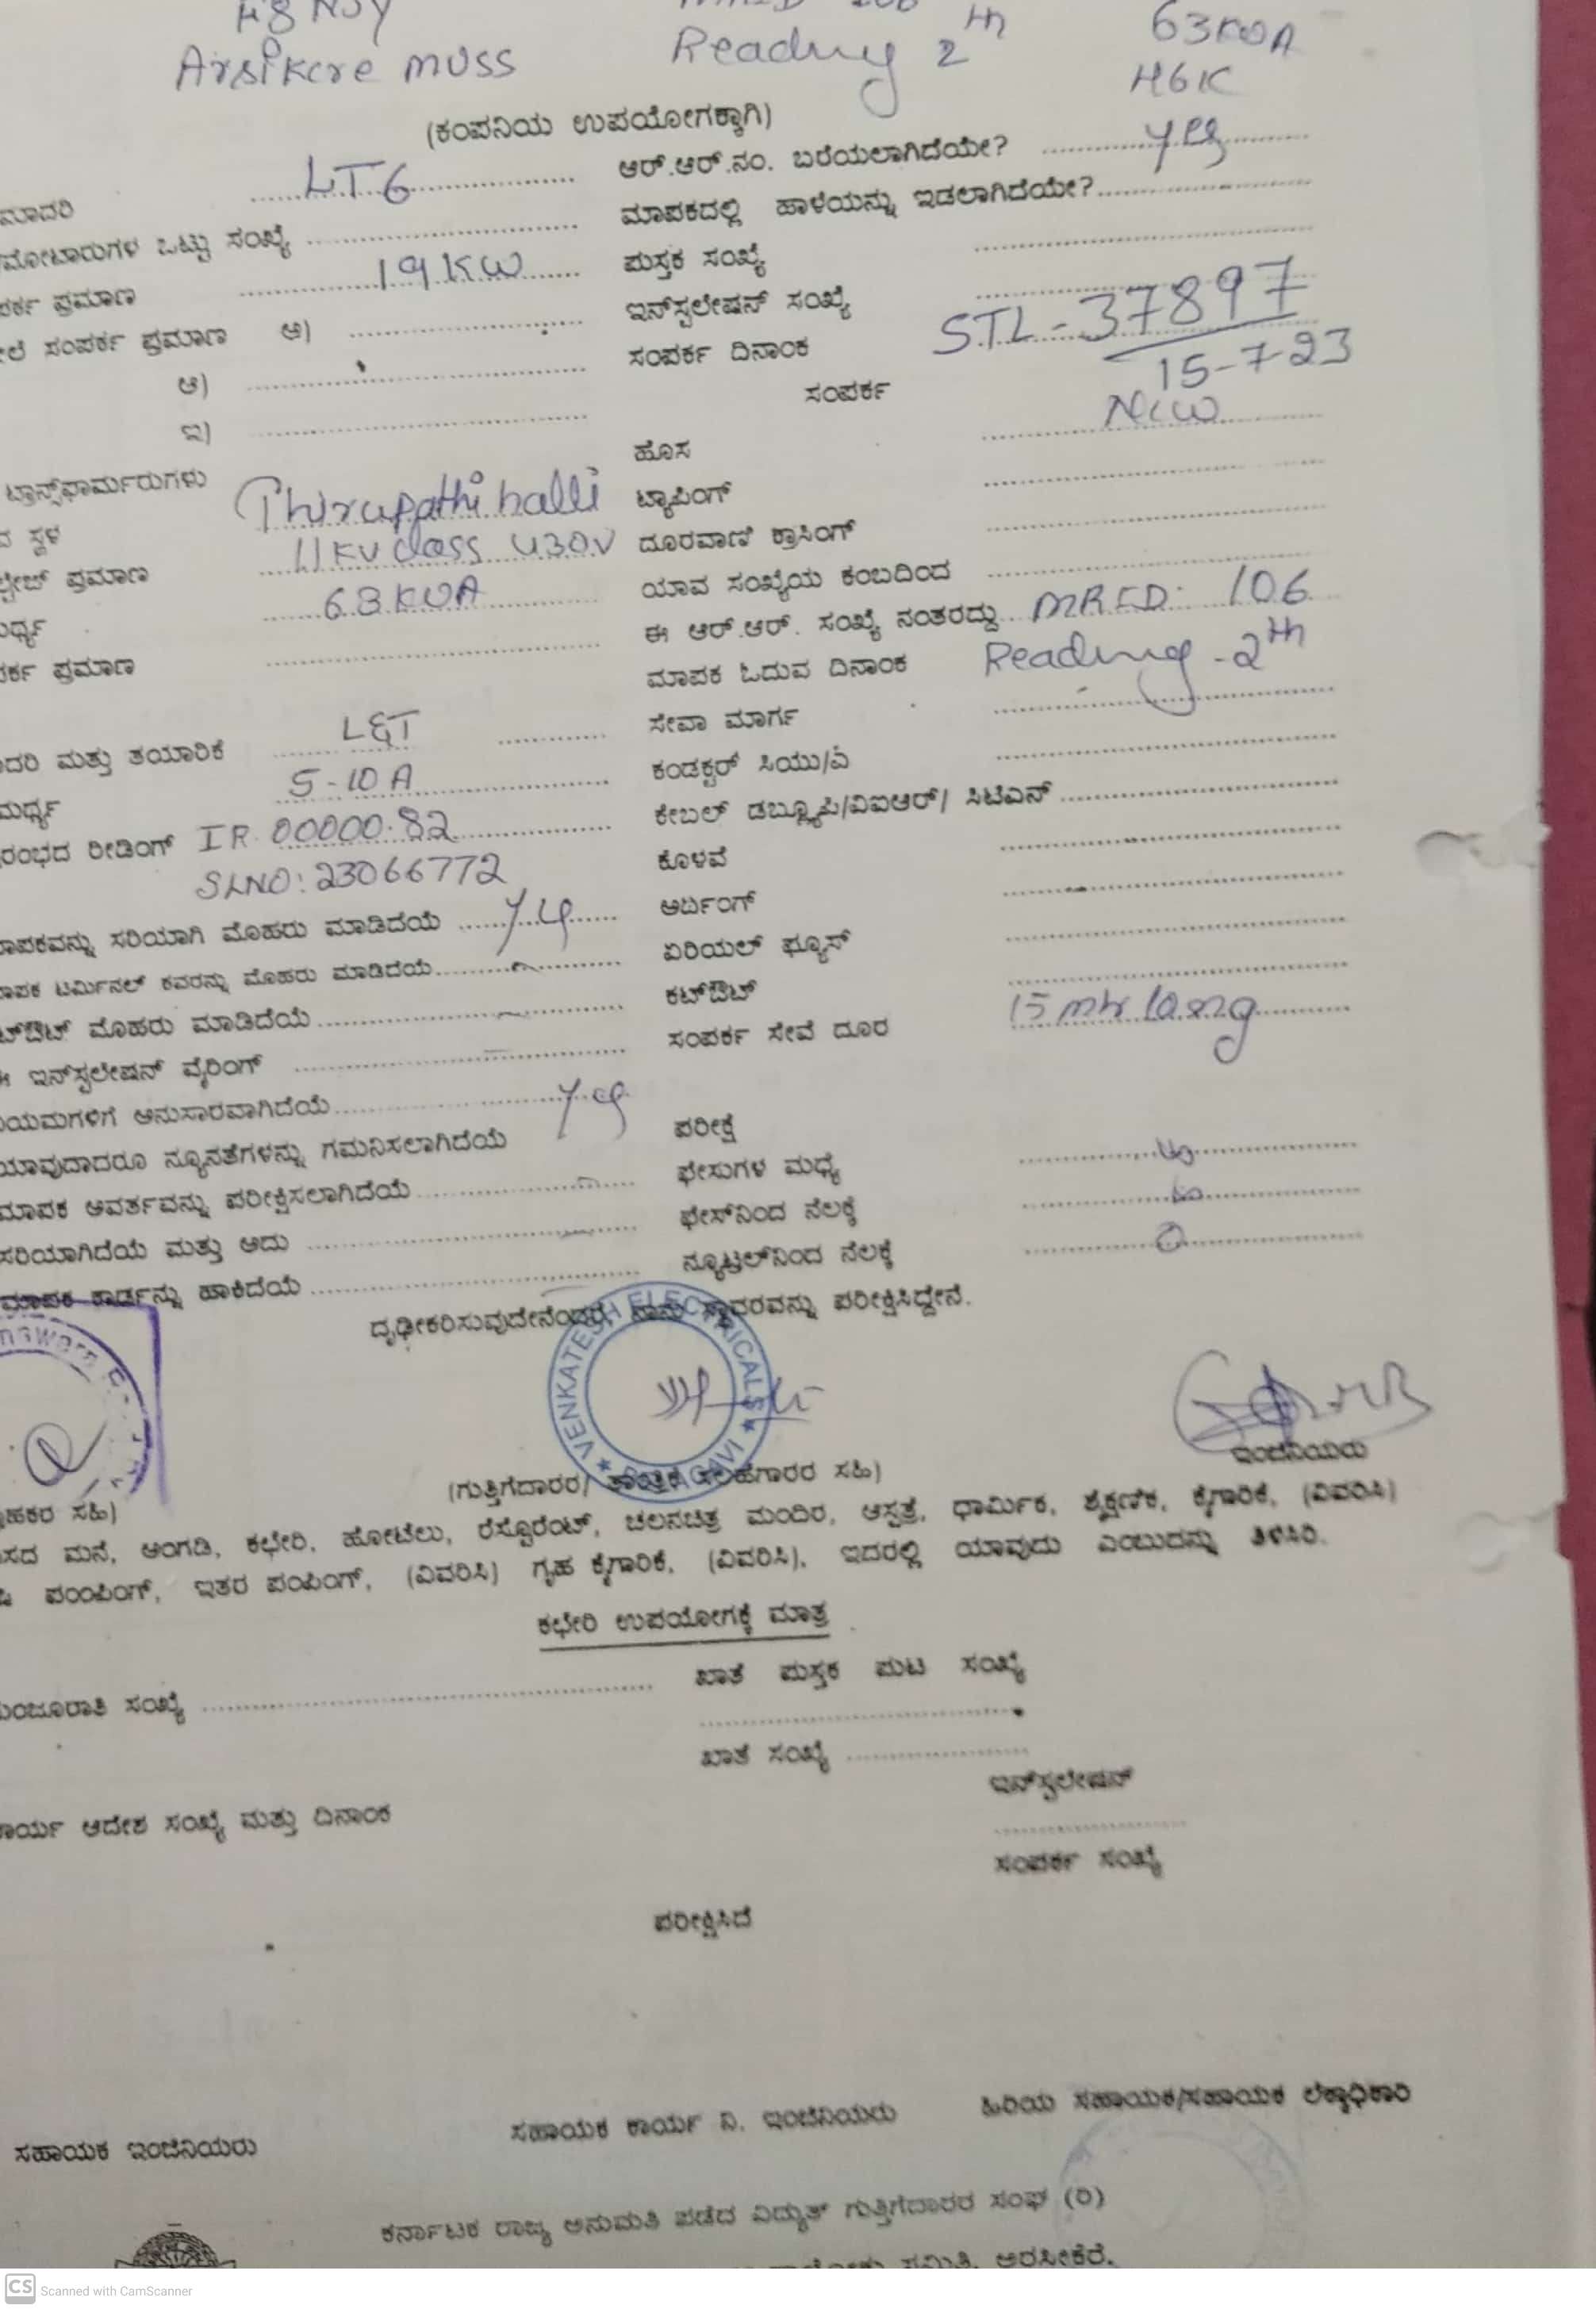 Arsikere MUSS Reading 2th 63KVA
H6K
(ಕಂಪನಿಯ ಉಪಯೋಗಕ್ಕಾಗಿ)
ಮಾದರಿ LT6 ಆರ್.ಆರ್.ನಂ. ಬರೆಯಲಾಗಿದೆಯೇ? yes
ಮೋಟಾರುಗಳ ಒಟ್ಟು ಸಂಖ್ಯೆ ಮಾಪಕದಲ್ಲಿ ಹಾಳೆಯನ್ನು ಇಡಲಾಗಿದೆಯೇ?
ಪ್ರಮಾಣ 19KW ಪುಸ್ತಕ ಸಂಖ್ಯೆ
ಸಂಪರ್ಕ ಪ್ರಮಾಣ ಅ) ಇನ್‌ಸ್ಟಲೇಷನ್ ಸಂಖ್ಯೆ STL-37897
ಆ) ಸಂಪರ್ಕ ದಿನಾಂಕ 15-7-23
ಇ) ಸಂಪರ್ಕ New
ಟ್ರಾನ್ಸ್‌ಫಾರ್ಮರುಗಳು ಹೊಸ
ಸ್ಥಳ Thirupathihalli ಟ್ಯಾಪಿಂಗ್
ಪ್ರಮಾಣ 11KV class 430V ದೂರವಾಣಿ ಕ್ರಾಸಿಂಗ್
63KVA ಯಾವ ಸಂಖ್ಯೆಯ ಕಂಬದಿಂದ
ಪ್ರಮಾಣ ಈ ಆರ್.ಆರ್. ಸಂಖ್ಯೆ ನಂತರದ್ದು MRCD: 106
ಮಾಪಕ ಓದುವ ದಿನಾಂಕ Reading - 2th
ಮತ್ತು ತಯಾರಿಕೆ L&T ಸೇವಾ ಮಾರ್ಗ
5-10A ಕಂಡಕ್ಟರ್ ಸಿಯು/ಏ
ರೀಡಿಂಗ್ IR 00000.82 ಕೇಬಲ್ ಡಬ್ಲ್ಯೂಪಿ/ವಿಐಆರ್/ ಸಿಟಿಎನ್
SLNO: 23066772 ಕೊಳವೆ
ಮಾಪಕವನ್ನು ಸರಿಯಾಗಿ ಮೊಹರು ಮಾಡಿದೆಯೆ yes ಅರ್ಥಿಂಗ್
ಮಾಪಕ ಟರ್ಮಿನಲ್ ಕವರನ್ನು ಮೊಹರು ಮಾಡಿದೆಯೆ ಏರಿಯಲ್ ಫ್ಯೂಸ್
ಕಟ್‌ಔಟ್ ಮೊಹರು ಮಾಡಿದೆಯೆ ಕಟ್‌ಔಟ್
ಈ ಇನ್‌ಸ್ಟಲೇಷನ್ ವೈರಿಂಗ್ ಸಂಪರ್ಕ ಸೇವೆ ದೂರ 15 mtr long
ನಿಯಮಗಳಿಗೆ ಅನುಸಾರವಾಗಿದೆಯೆ yes
ಯಾವುದಾದರೂ ನ್ಯೂನತೆಗಳನ್ನು ಗಮನಿಸಲಾಗಿದೆಯೆ ಪರೀಕ್ಷೆ
ಮಾಪಕ ಆವರ್ತವನ್ನು ಪರೀಕ್ಷಿಸಲಾಗಿದೆಯೆ ಫೇಸುಗಳ ಮಧ್ಯೆ
ಸರಿಯಾಗಿದೆಯೆ ಮತ್ತು ಅದು ಫೇಸ್‌ನಿಂದ ನೆಲಕ್ಕೆ
ಮಾಪಕ ಕಾರ್ಡನ್ನು ಹಾಕಿದೆಯೆ ನ್ಯೂಟ್ರಲ್‌ನಿಂದ ನೆಲಕ್ಕೆ 0
ದೃಢೀಕರಿಸುವುದೇನೆಂದರೆ, ನಾನು ಸ್ಥಾವರವನ್ನು ಪರೀಕ್ಷಿಸಿದ್ದೇನೆ.
VENKATESH ELECTRICALS
ಇಂಜಿನಿಯರು
(ಗುತ್ತಿಗೆದಾರರ/ ತಾಂತ್ರಿಕ ಸಲಹೆಗಾರರ ಸಹಿ)
ಸಹಿ)
ಮನೆ, ಅಂಗಡಿ, ಕಛೇರಿ, ಹೋಟೆಲು, ರೆಸ್ಟೊರೆಂಟ್, ಚಲನಚಿತ್ರ ಮಂದಿರ, ಆಸ್ಪತ್ರೆ, ಧಾರ್ಮಿಕ, ಶೈಕ್ಷಣಿಕ, ಕೈಗಾರಿಕೆ, (ವಿವರಿಸಿ)
ಪಂಪಿಂಗ್, ಇತರ ಪಂಪಿಂಗ್, (ವಿವರಿಸಿ) ಗೃಹ ಕೈಗಾರಿಕೆ, (ವಿವರಿಸಿ), ಇದರಲ್ಲಿ ಯಾವುದು ಎಂಬುದನ್ನು ತಿಳಿಸಿರಿ.
ಕಛೇರಿ ಉಪಯೋಗಕ್ಕೆ ಮಾತ್ರ
ಮಂಜೂರಾತಿ ಸಂಖ್ಯೆ ಖಾತೆ ಪುಸ್ತಕ ಪುಟ ಸಂಖ್ಯೆ
ಖಾತೆ ಸಂಖ್ಯೆ
ಇನ್‌ಸ್ಟಲೇಷನ್
ಕಾರ್ಯ ಆದೇಶ ಸಂಖ್ಯೆ ಮತ್ತು ದಿನಾಂಕ
ಸಂಪರ್ಕ ಸಂಖ್ಯೆ
ಪರೀಕ್ಷಿಸಿದೆ
ಸಹಾಯಕ ಇಂಜಿನಿಯರು ಸಹಾಯಕ ಕಾರ್ಯ ನಿ. ಇಂಜಿನಿಯರು ಹಿರಿಯ ಸಹಾಯಕ/ಸಹಾಯಕ ಲೆಕ್ಕಾಧಿಕಾರಿ
ಕರ್ನಾಟಕ ರಾಜ್ಯ ಅನುಮತಿ ಪಡೆದ ವಿದ್ಯುತ್ ಗುತ್ತಿಗೆದಾರರ ಸಂಘ (ರಿ)
ಸಮಿತಿ, ಅರಸೀಕೆರೆ.
CS Scanned with CamScanner